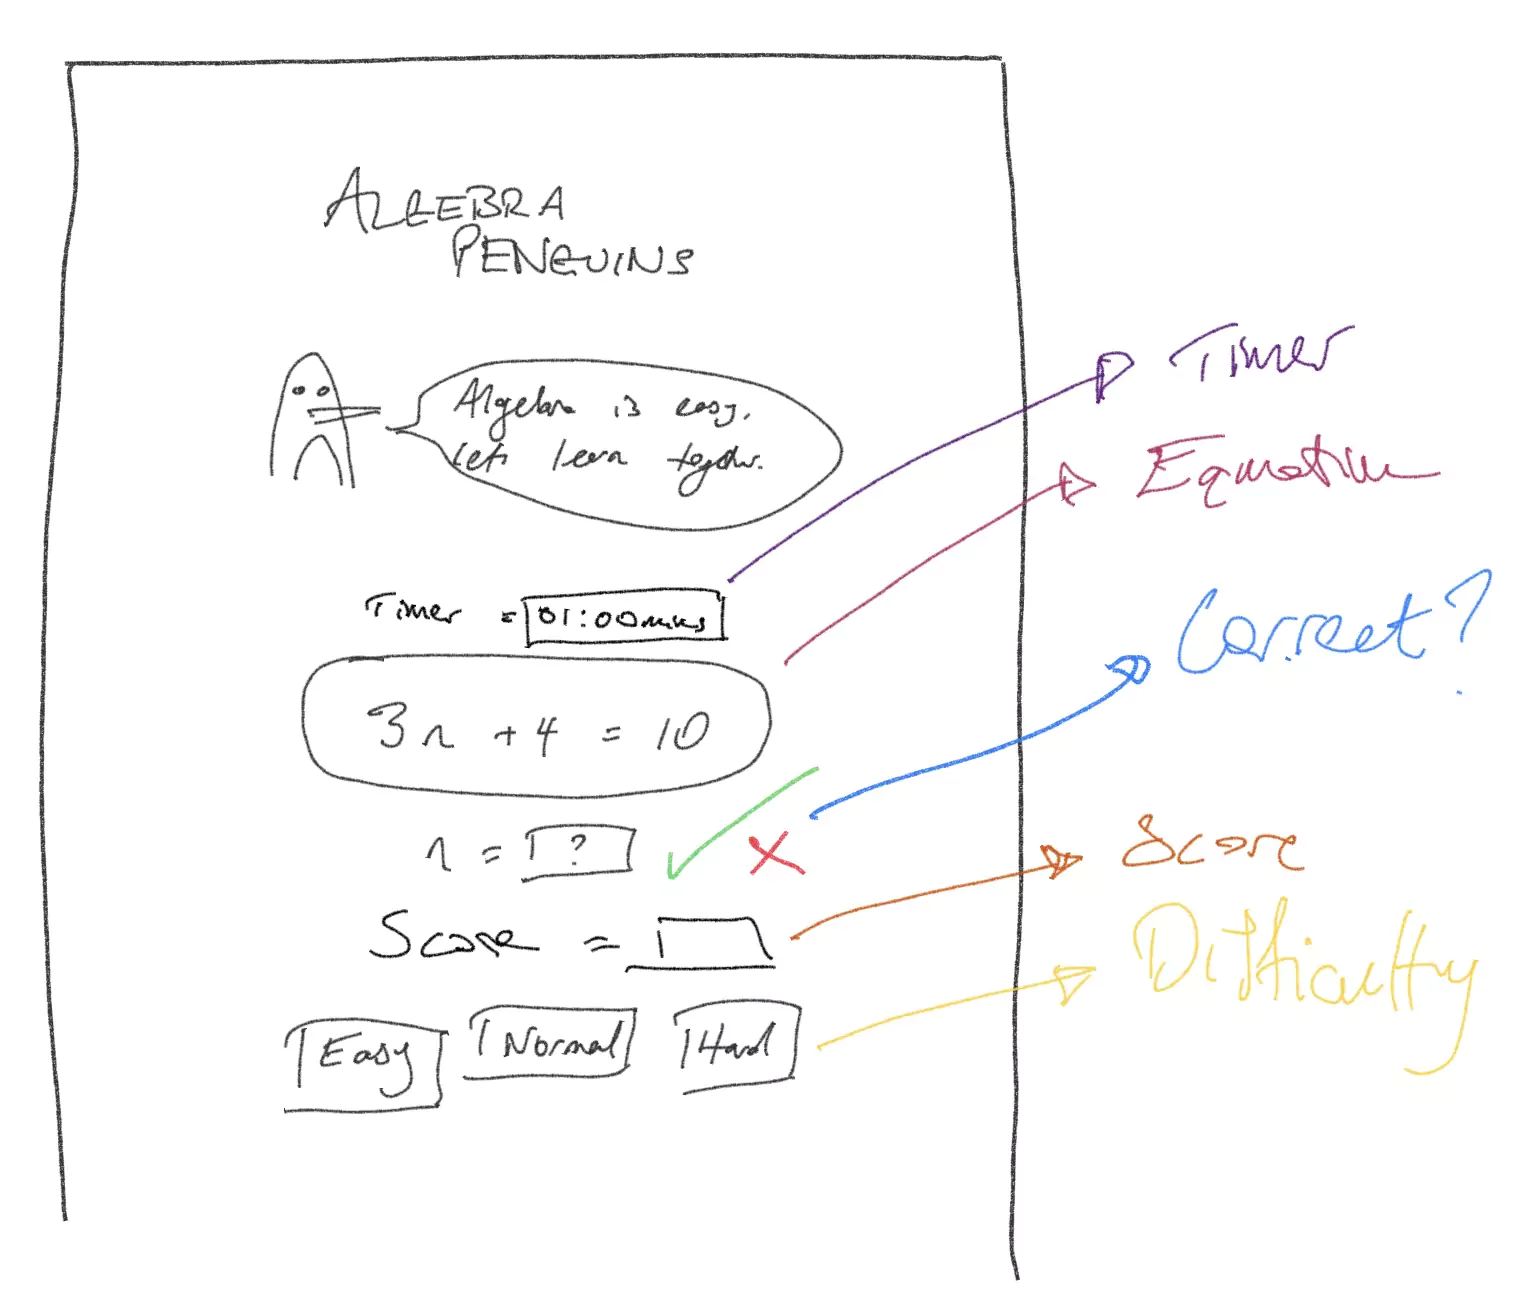 ALGEBRA
PENGUINS
Algebra is easy.
Lets learn together.
Timer = 01:00mins
3n + 4 = 10
n = ?
Score =
Easy
Normal
Hard
Timer
Equation
Correct?
Score
Difficulty